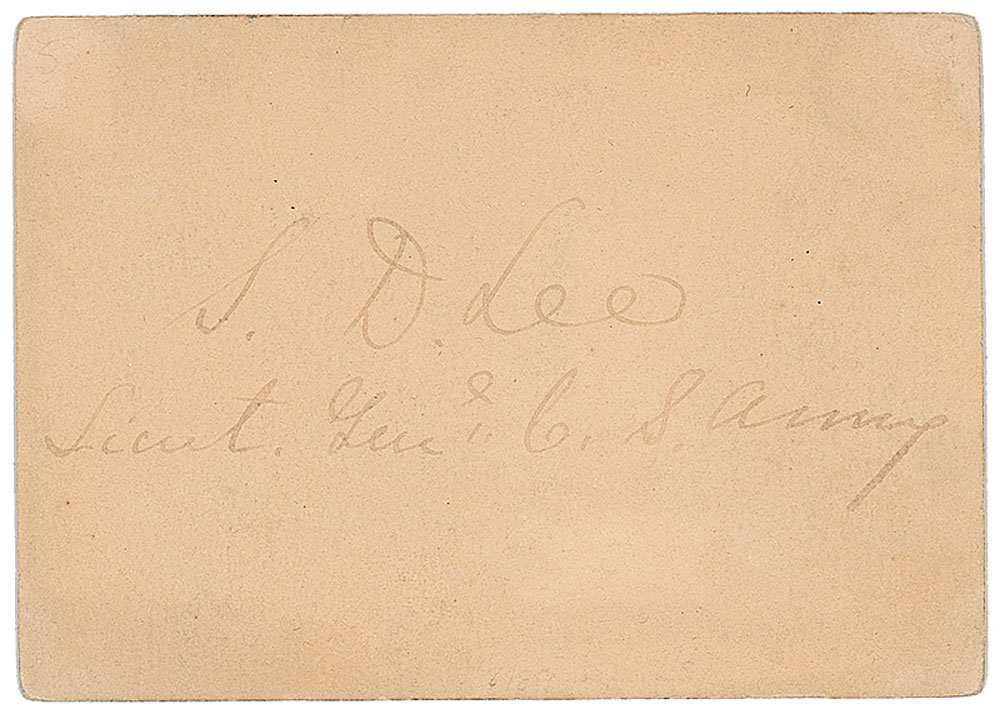 S. D. Lee
Lieut. Genl. C. S. Army